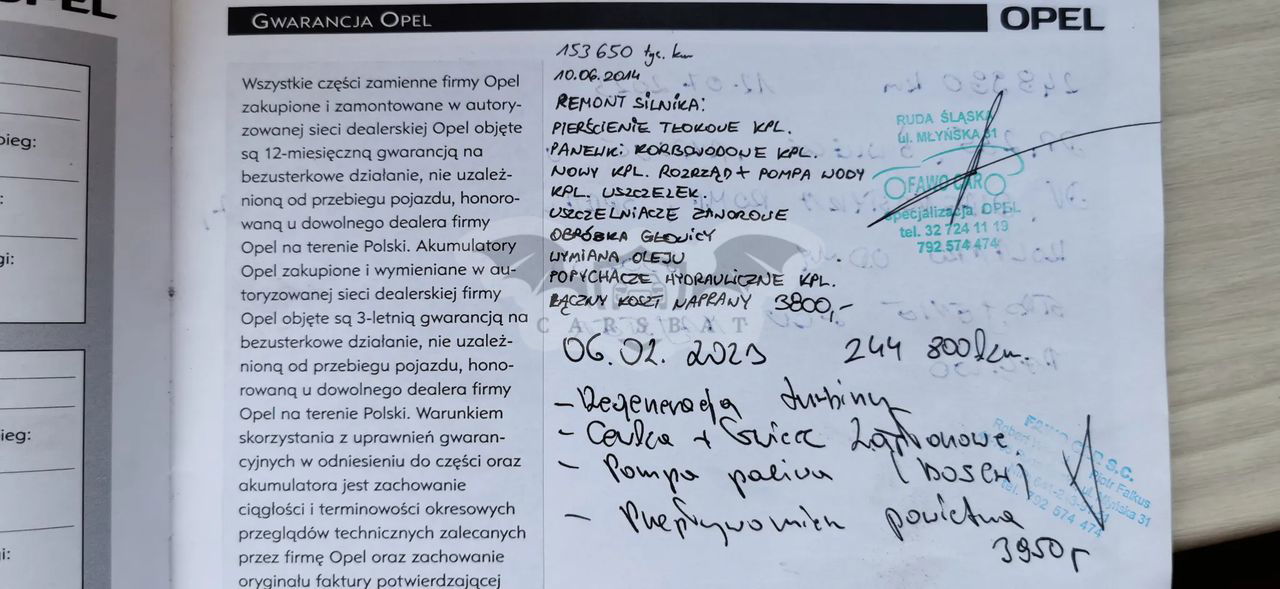 OPEL
bieg:
gi:
bieg:
gi:
Gwarancja Opel
OPEL
Wszystkie części zamienne firmy Opel
zakupione i zamontowane w autory-
zowanej sieci dealerskiej Opel objęte
są 12-miesięczną gwarancją na
bezusterkowe działanie, nie uzależ-
nioną od przebiegu pojazdu, honoro-
waną u dowolnego dealera firmy
Opel na terenie Polski. Akumulatory
Opel zakupione i wymieniane w au-
toryzowanej sieci dealerskiej firmy
Opel objęte są 3-letnią gwarancją na
bezusterkowe działanie, nie uzależ-
nioną od przebiegu pojazdu, hono-
rowaną u dowolnego dealera firmy
Opel na terenie Polski. Warunkiem
skorzystania z uprawnień gwaran-
cyjnych w odniesieniu do części oraz
akumulatora jest zachowanie
ciągłości i terminowości okresowych
przeglądów technicznych zalecanych
przez firmę Opel oraz zachowanie
oryginału faktury potwierdzającej
153650 tyc. km
10.06.2014
REMONT SILNIKA:
PIERŚCIENIE TŁOKOWE KPL.
PANEWKI KORBOWODOWE KPL.
NOWY KPL. ROZRZĄD + POMPA WODY
KPL. USZCZELEK
USZCZELNIACZE ZAWOROWE
OBRÓBKA GŁOWICY
WYMIANA OLEJU
POPYCHACZE HYDRAULICZNE KPL.
ŁĄCZNY KOSZT NAPRAWY 3800,-
RUDA ŚLĄSKA
ul. MŁYŃSKA 31
FAWO CAR
specjalizacja OPEL
tel. 32 724 11 19
792 574 474
CARSBAT
06.02.2023 244 800 km.
- Regeneracja turbiny
- Cewka + Świece Zapłonowe.
- Pompa paliwa (BOSCH)
- Przepływomierz powietrza
3950
S.C.
Piotr Falkus
ul. Młyńska 31
tel. 792 574 474